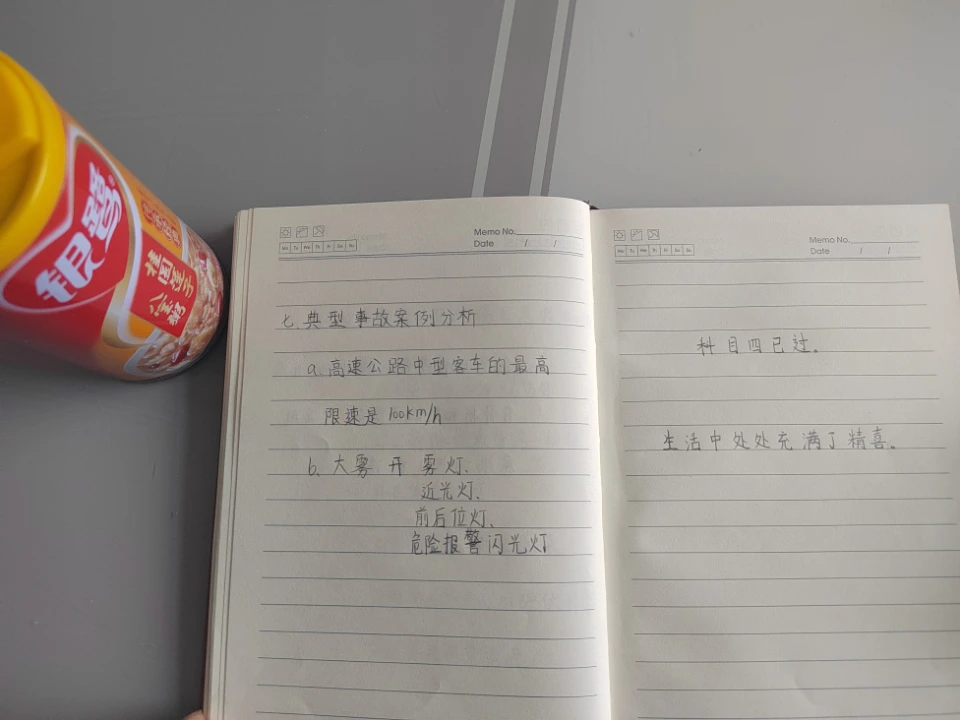 银鹭
桂圆莲子
八宝粥
Memo No.
Mo Tu We Th Fr Sa Su
Date / /
七.典型事故案例分析
a.高速公路中型客车的最高
限速是100km/h
b.大雾开雾灯、
近光灯、
前后位灯、
危险报警闪光灯
Memo No.
Mo Tu We Th Fr Sa Su
Date / /
科目四已过。
生活中处处充满了精喜。